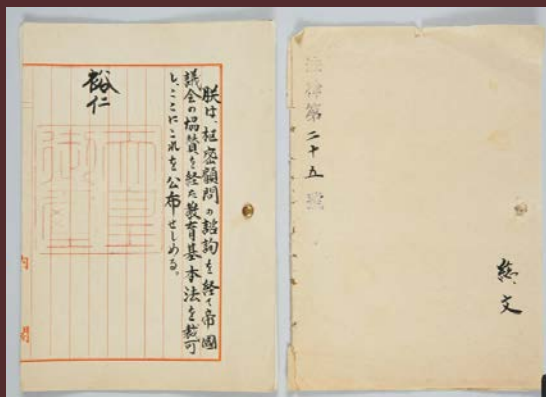 朕は、枢密顧問の諮詢を経て帝國
議会の協賛を経た教育基本法を裁可
し、ここにこれを公布せしめる。
裕仁
天皇
御璽
内閣
法律第二十五號